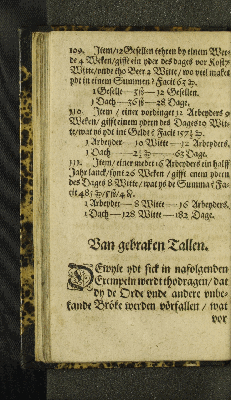 109. Item/12 Gesellen tehren by einem Wer-
de 4 Weken/gifft ein yder des dages vor Kost 7
Witte/vnde tho Beer 2 Witte/wo veel maket
ydt in einem Summen? Facit 63
1 Geselle — 12 Gesellen.
1 Dach — 36 ß — 28 Dage.
110. Item / einer vordinget 12 Arbeyders 9
Weken/ gifft einem ydern des Dages 10 Wit-
te/wat ys ydt int Geldt? Facit 157½
1 Arbeyder — 10 Witte — 12 Arbeyders.
1 Dach — 2½ — 63 Dage.
111. Item/einer medet 16 Arbeyders ein halff
Jahr lanck/synt 26 Weken / gifft enem ydern
des Dages 8 Witte/wat ys de Summa? Fa-
cit 485
1 Arbeyder — 8 Witte — 16 Arbeyders.
1 Dach — 128 Witte — 182 Dage.
Van gebraken Tallen.
DEwyle ydt sick in nafolgenden
Exempeln werdt thodragen/dat
dy de Orde vnde andere vnbe-
kande Bröke werden vörfallen / wat
vor